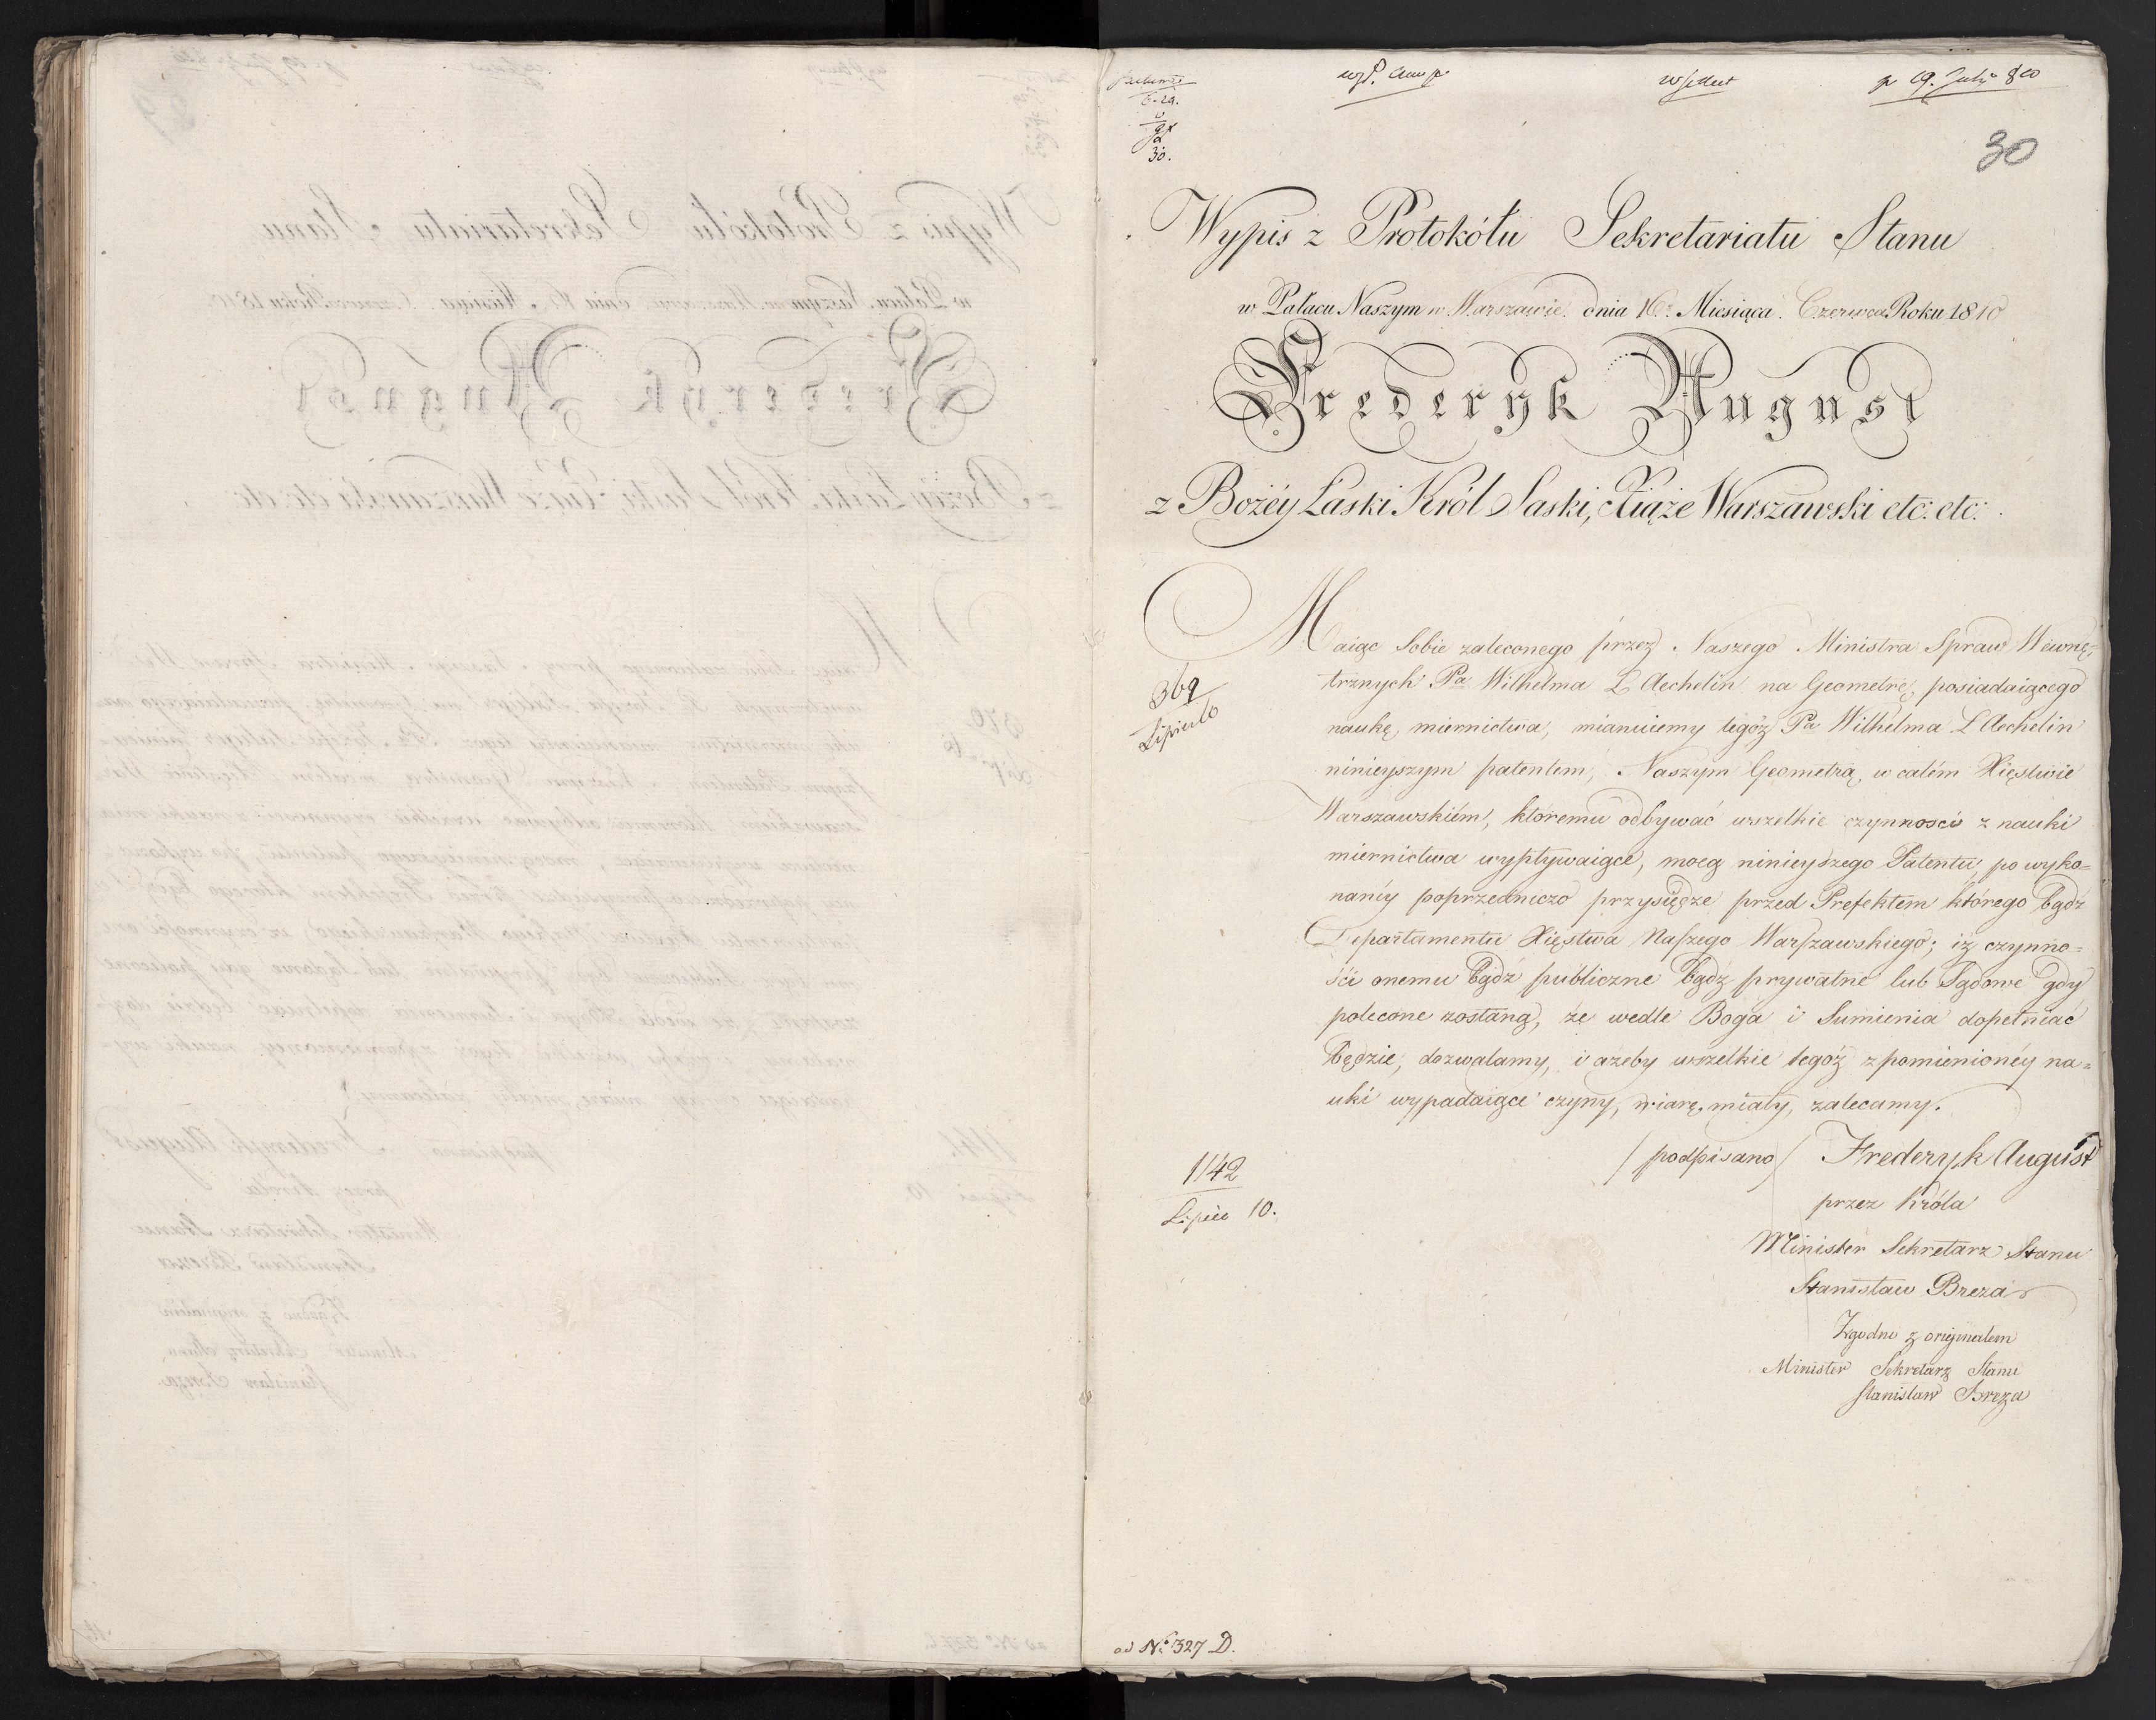 30
Wypis z Protokółu Sekretariatu Stanu
w Pałacu Naszym w Warszawie dnia 16. Miesiąca Czerwca Roku 1810
Frederyk August
z Bożéy Łaski Król Saski, Xiąże Warszawski etc: etc:
Maiąc Sobie zaleconego przez Naszego Ministra Spraw Wewnę=
trznych Pa Wilhelma L'Aechelin na Geometrę, posiadaiącego
naukę, miernictwa, mianuiemy tegoż Pa Wilhelma L'Aechelin
ninieyszym patentem, Naszym Geometrą, w całém Xięstwie
Warszawskiém, któremu odbywać wszelkie czynnosci z nauki
miernictwa wypływaiące, mocą ninieyszego Patentu, po wyko=
nanéy poprzedniczo przysiędze przed Prefektem którego bądź
Departamentu Xięstwa Naszego Warszawskiego; iż czynno=
ści onemu bądź publiczne bądź prywatne lub Sądowe gdy
polecone zostaną, że wedle Boga i Sumienia dopełniać
będzie, dozwalamy, i ażeby wszelkie tegoż z pomienionéy na=
uki wypadaiące czyny, wiarę miały, zalecamy.
369
Lipiec 10
/podpisano/ Frederyk August
przez Króla
Minister Sekretarz Stanu
Stanisław Breza
1142
Lipiec 10.
Zgodno z originałem
Minister Sekretarz Stanu
Stanisław Breza
ad No 327 D.